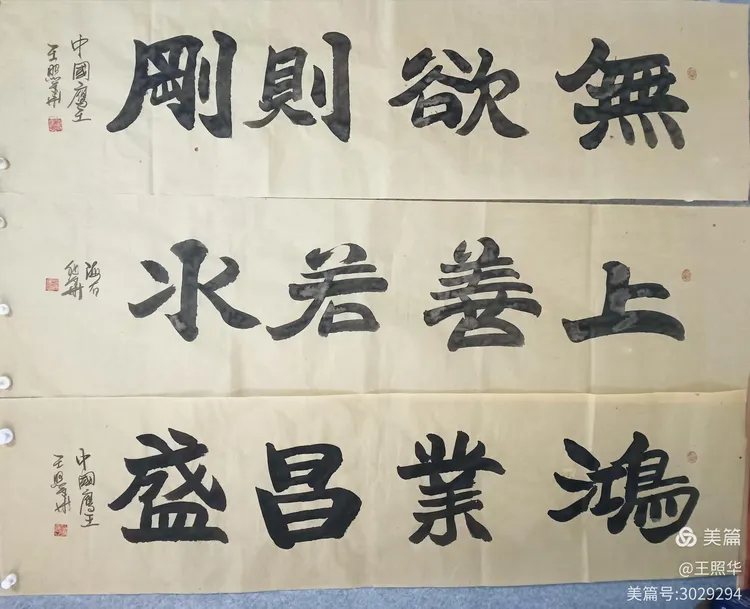 無欲則剛
中國鷹王
王照華
上善若水
海右
照華
鴻業昌盛
中國鷹王
王照華
美篇
@王照华
美篇号:3029294